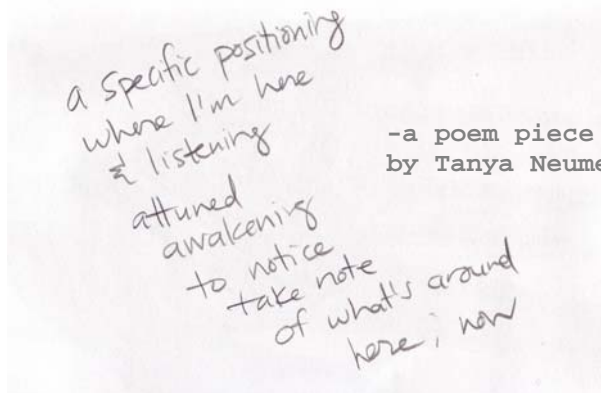 a specific positioning
where I'm here
& listening
attuned
awakening
to notice
take note
of what's around
here; now
-a poem piece
by Tanya Neume